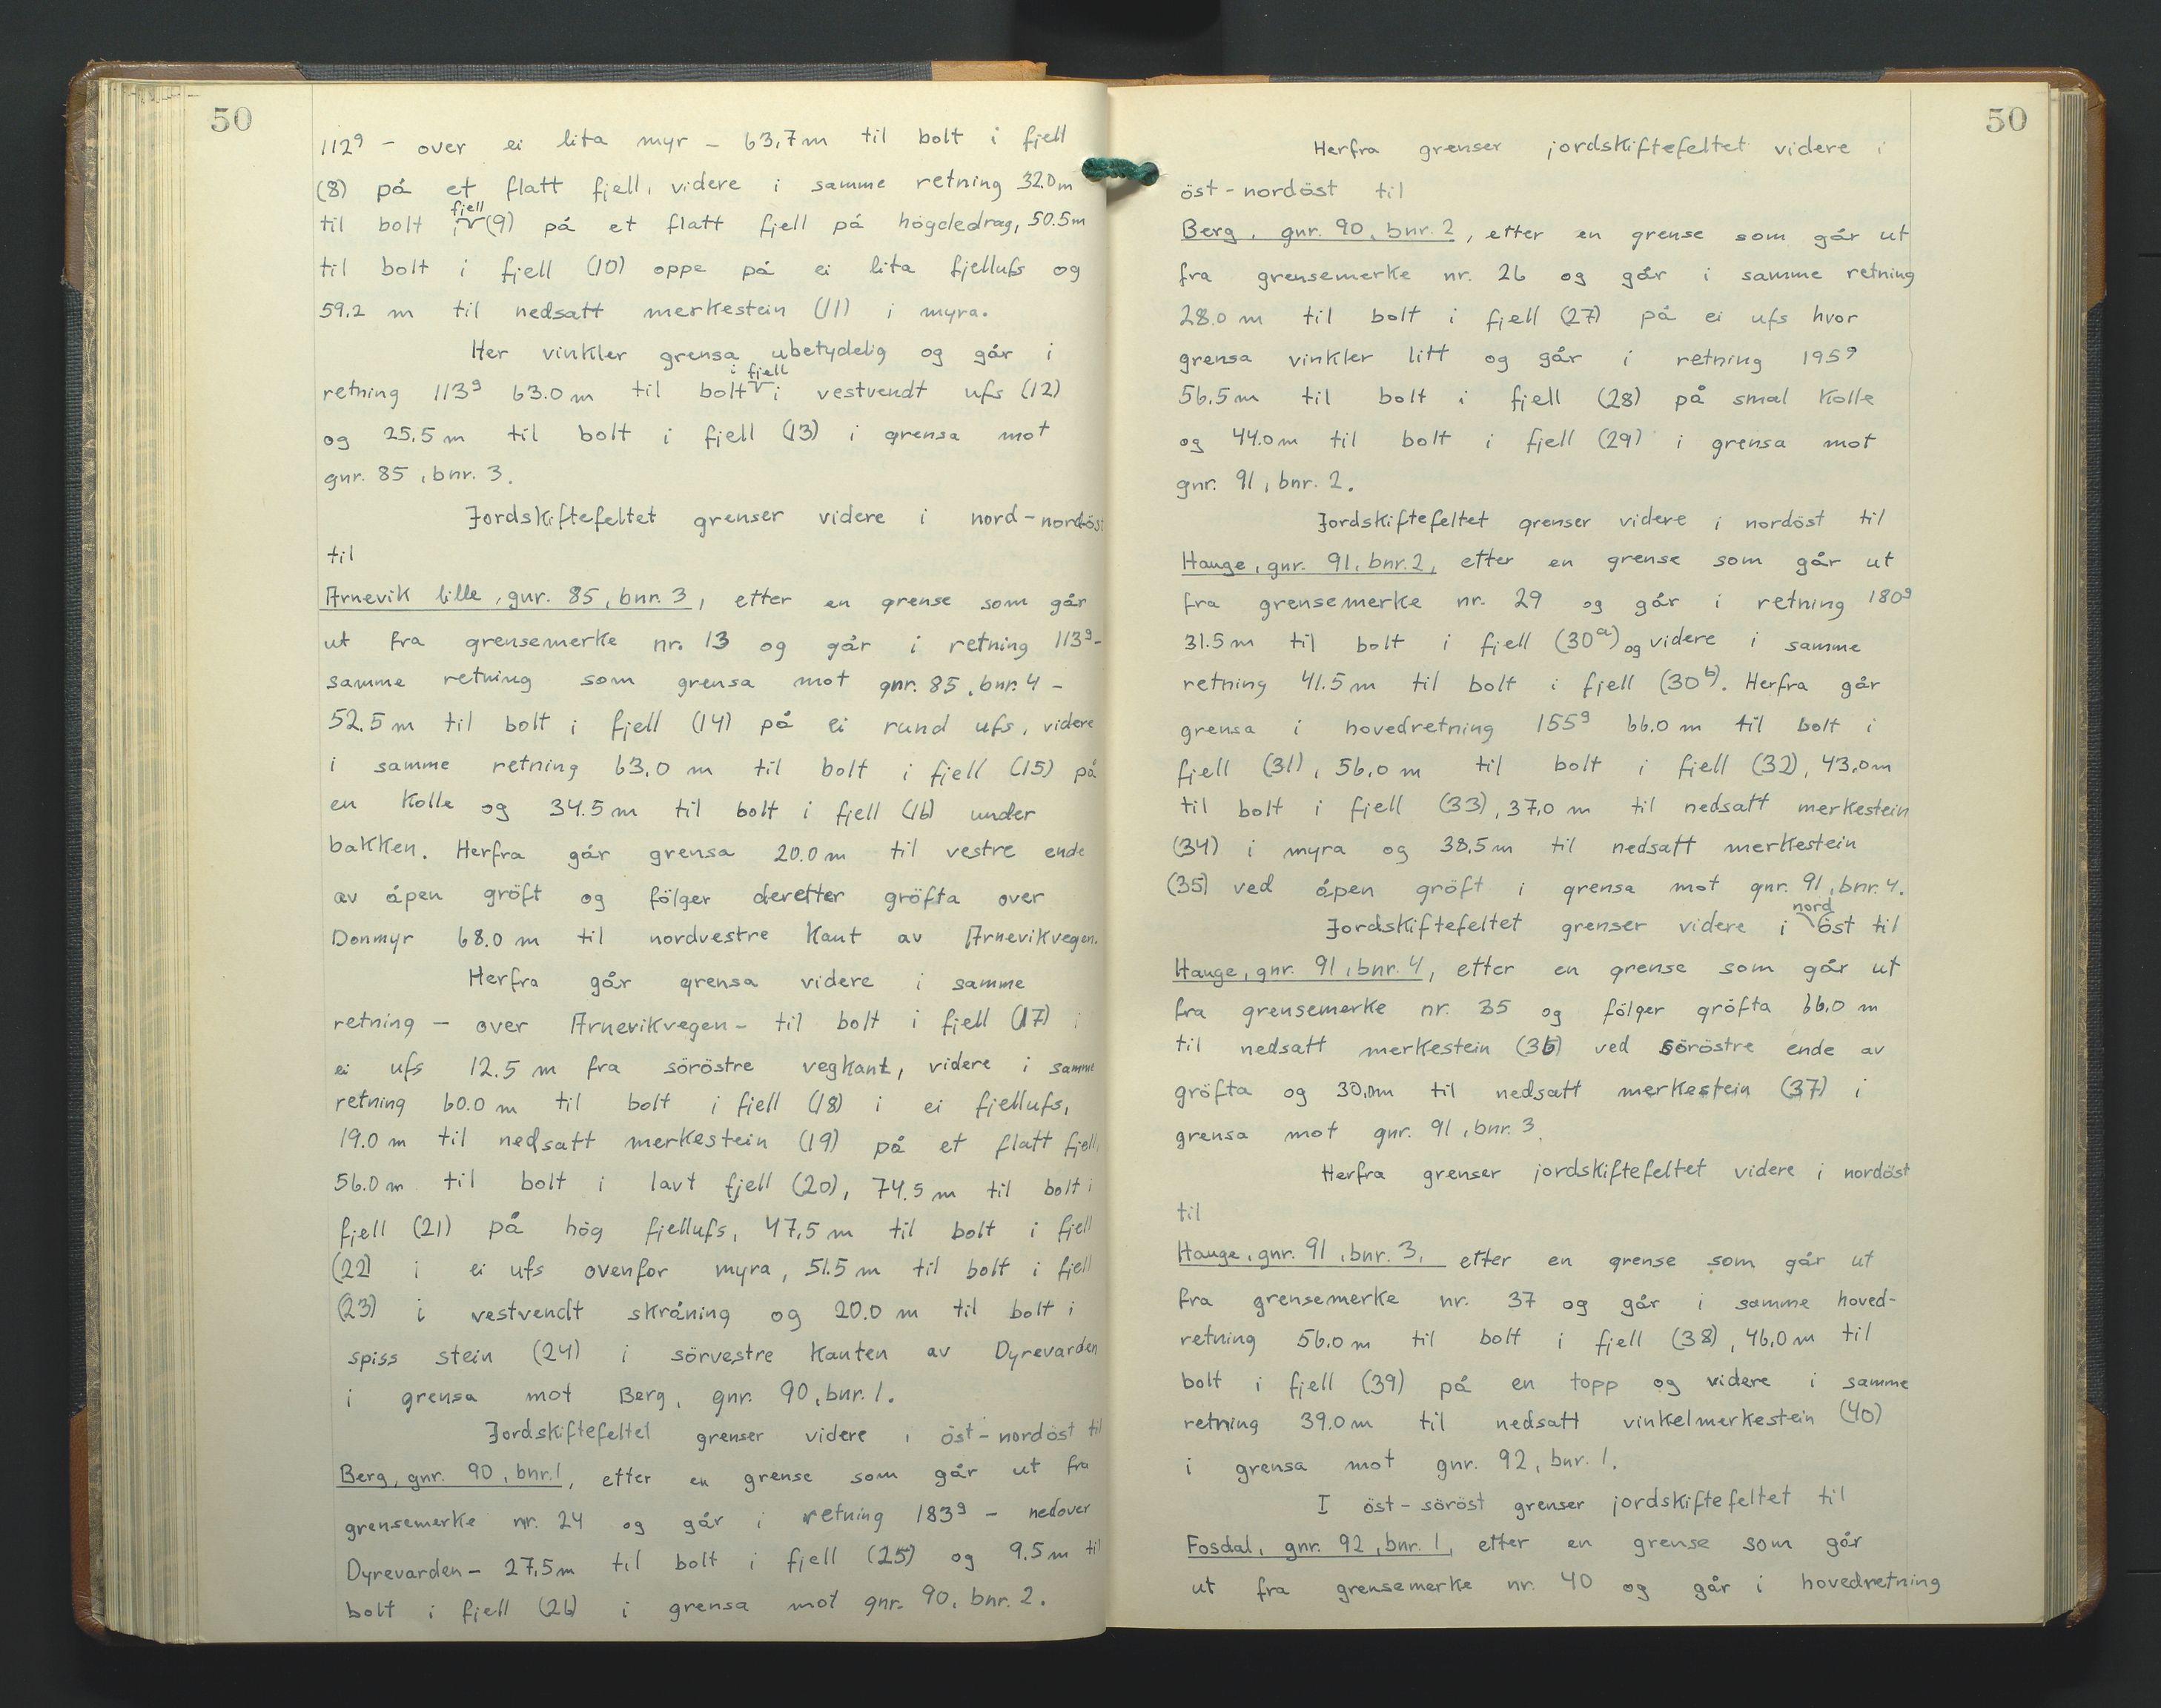 50
112g - over ei lita myr - 63,7m til bolt i fjell
(8) på et flatt fjell, videre i samme retning 32.0m
fjell
til bolt i (9) på et flatt fjell på högdedrag, 50.5m
til bolt i fjell (10) oppe på ei lita fjellufs og
59.2 m til nedsatt merkestein (11) i myra.
Her vinkler grensa ubetydelig og går i
i fjell
retning 113g 63.0m til bolt i vestvendt ufs (12)
og 25.5m til bolt i fjell (13) i grensa mot
gnr. 85, bnr. 3.
Jordskiftefeltet grenser videre i nord-nordöst
til
Arnevik lille, gnr. 85, bnr. 3, etter en grense som går
ut fra grensemerke nr. 13 og går i retning 113g-
samme retning som grensa mot gnr. 85, bnr. 4 -
52.5m til bolt i fjell (14) på ei rund ufs, videre
i samme retning 63.0 m til bolt i fjell (15) på
en kolle og 34.5m til bolt i fjell (16) under
bakken. Herfra går grensa 20.0m til vestre ende
av åpen gröft og fölger deretter gröfta over
Donmyr 68.0 m til nordvestre kant av Arnevikvegen.
Herfra går grensa videre i samme
retning - over Arnevikvegen - til bolt i fjell (17) i
ei ufs 12.5 m fra söröstre vegkant, videre i samme
retning 60.0 m til bolt i fjell (18) i ei fjellufs,
19.0 m til nedsatt merkestein (19) på et flatt fjell,
56.0m til bolt i lavt fjell (20), 74.5m til bolt i
fjell (21) på hög fjellufs, 47.5m til bolt i fjell
(22) i ei ufs ovenfor myra, 51.5m til bolt i fjell
(23) i vestvendt skråning og 20.0 m til bolt i
spiss stein (24) i sörvestre kanten av Dyrevarden
i grensa mot Berg, gnr. 90, bnr. 1.
Jordskiftefeltet grenser videre i öst-nordöst til
Berg, gnr. 90, bnr. 1, etter en grense som går ut fra
grensemerke nr. 24 og går i retning 183g - nedover
Dyrevarden - 27.5m til bolt i fjell (25) og 9.5m til
bolt i fjell (26) i grensa mot gnr. 90, bnr. 2.
50
Herfra grenser jordskiftefeltet videre i
öst-nordöst til
Berg, gnr. 90, bnr. 2, etter en grense som går ut
fra grensemerke nr. 26 og går i samme retning
28.0 m til bolt i fjell (27) på ei ufs hvor
grensa vinkler litt og går i retning 195g
56.5m til bolt i fjell (28) på smal kolle
og 44.0m til bolt i fjell (29) i grensa mot
gnr. 91, bnr. 2.
Jordskiftefeltet grenser videre i nordöst til
Hauge, gnr. 91, bnr. 2, etter en grense som går ut
fra grensemerke nr. 29 og går i retning 180g
31.5m til bolt i fjell (30a) og videre i samme
retning 41.5m til bolt i fjell (30b). Herfra går
grensa i hovedretning 155g 66.0 m til bolt i
fjell (31), 56.0 m til bolt i fjell (32), 43.0m
til bolt i fjell (33), 37.0 m til nedsatt merkestein
(34) i myra og 38.5m til nedsatt merkestein
(35) ved åpen gröft i grensa mot gnr. 91, bnr. 4.
nord
Jordskiftefeltet grenser videre i öst til
Hauge, gnr. 91, bnr. 4, etter en grense som går ut
fra grensemerke nr. 35 og fölger gröfta 66.0 m
til nedsatt merkestein (36) ved söröstre ende av
gröfta og 30.0m til nedsatt merkestein (37) i
grensa mot gnr. 91, bnr. 3.
Herfra grenser jordskiftefeltet videre i nordöst
til
Hauge, gnr. 91, bnr. 3, etter en grense som går ut
fra grensemerke nr. 37 og går i samme hoved-
retning 56.0m til bolt i fjell (38), 46.0m til
bolt i fjell (39) på en topp og videre i samme
retning 39.0m til nedsatt vinkelmerkestein (40)
i grensa mot gnr. 92, bnr. 1.
I öst-söröst grenser jordskiftefeltet til
Fosdal, gnr. 92, bnr. 1, etter en grense som går
ut fra grensemerke nr. 40 og går i hovedretning